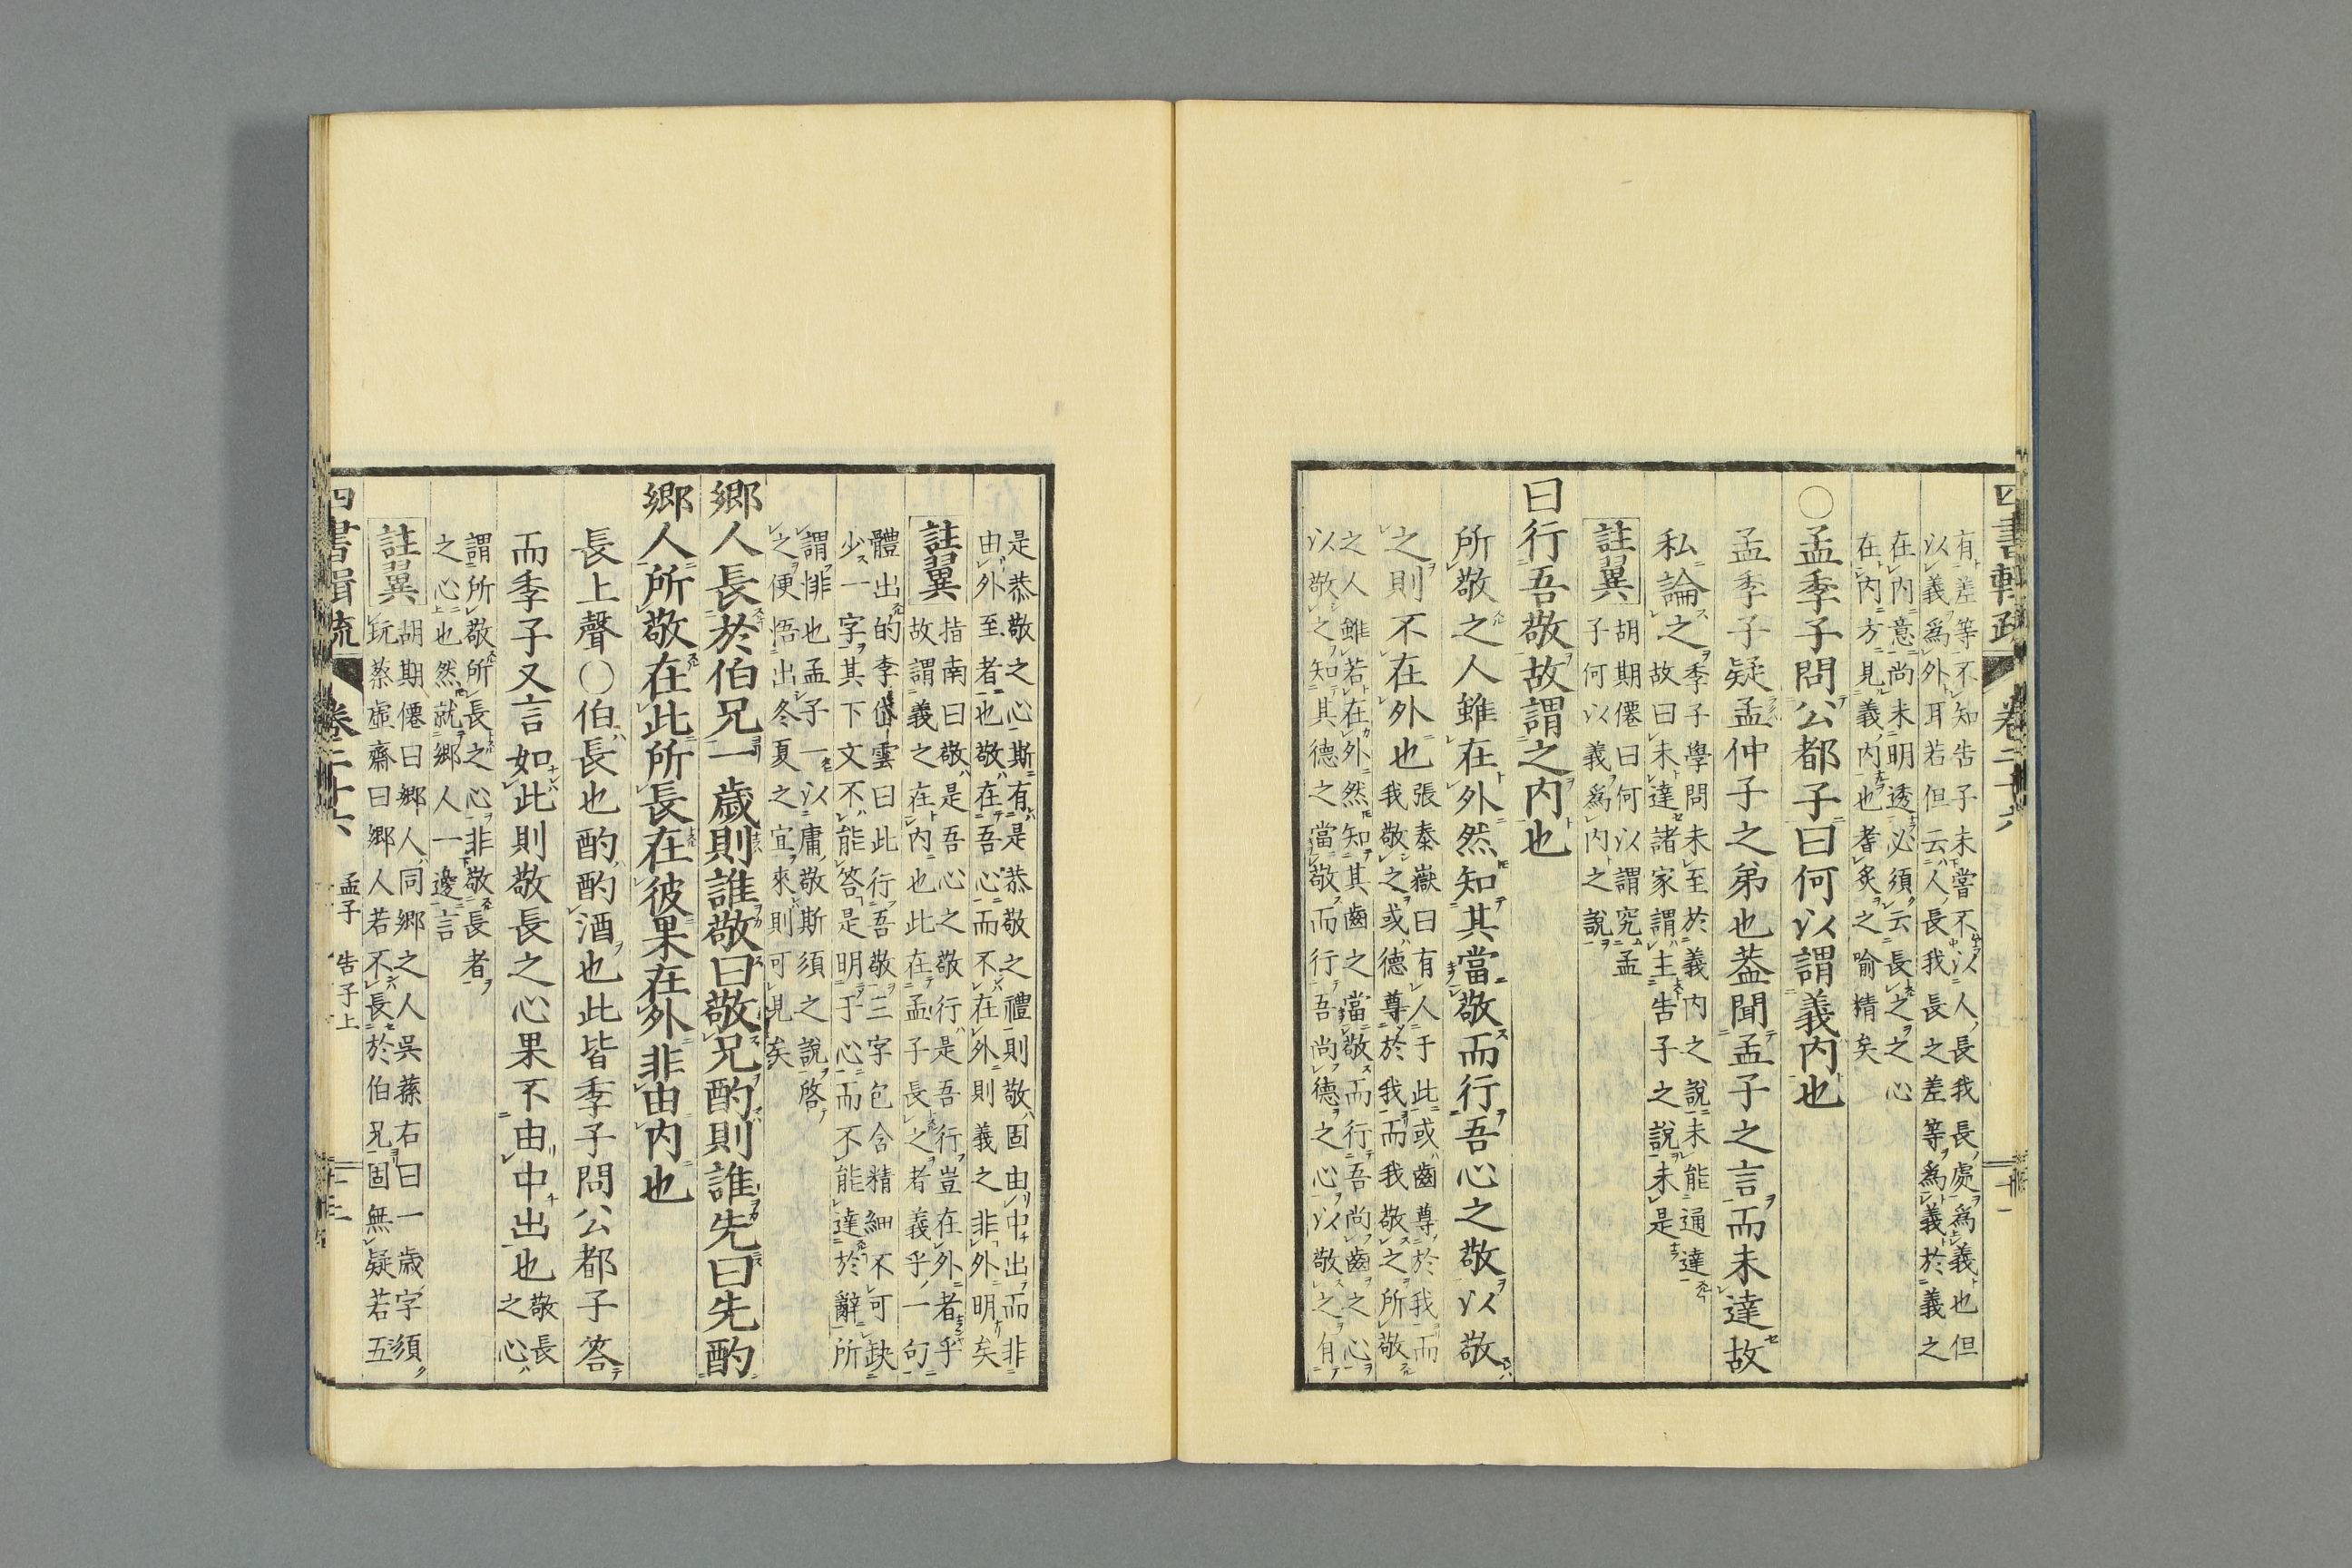 有差等不知告子未嘗不以人長我長處爲義也但
以義爲外耳若但云人長我長之差等爲義於義之
在内意尚未明透必須云長之之心
在内方見義内也耆炙之喻精矣
○孟季子問公都子曰何以謂義内也
孟季子疑孟仲子之弟也葢聞孟子之言而未達故
私論之
季子學問未至於義内之說未能通達
故曰未達諸家謂主告子之說未是
註翼
胡期僊曰何以謂究孟
子何以義爲内之說
曰行吾敬故謂之内也
所敬之人雖在外然知其當敬而行吾心之敬以敬
之則不在外也
張泰嶽曰有人于此或齒尊於我而
我敬之或德尊於我而我敬之所敬
之人雖若在外然知其齒之當敬而行吾尚齒之心
以敬之知其德之當敬而行吾尚德之心以敬之有
是恭敬之心斯有是恭敬之禮則敬固由中出而非
由外至者也敬在吾心而不在外則義之非外明矣
註翼
指南曰敬是吾心之敬行是吾行豈在外者乎
故謂義之在内也此在孟子長之者義乎一句
體出的李岱雲曰此行吾敬三字包含精細不可缺
少一字其下文不能答是明于心而不能達於辭所
謂悱也孟子一以庸敬斯須之說啓
之便悟出冬夏之宜來則可見矣
鄉人長於伯兄一歲則誰敬曰敬兄酌則誰先曰先酌
鄉人所敬在此所長在彼果在外非由内也
長上聲○伯長也酌酌酒也此皆季子問公都子答
而季子又言如此則敬長之心果不由中出也
敬長
之心
謂所敬所長之心非敬長者
之心也然就鄉人一邊言
註翼
胡期僊曰鄉人同鄉之人吳蓀右曰一歲字須
玩蔡虛齋曰鄉人若不長於伯兄固無疑若五
四書輯疏
卷二十六
孟子
告子上